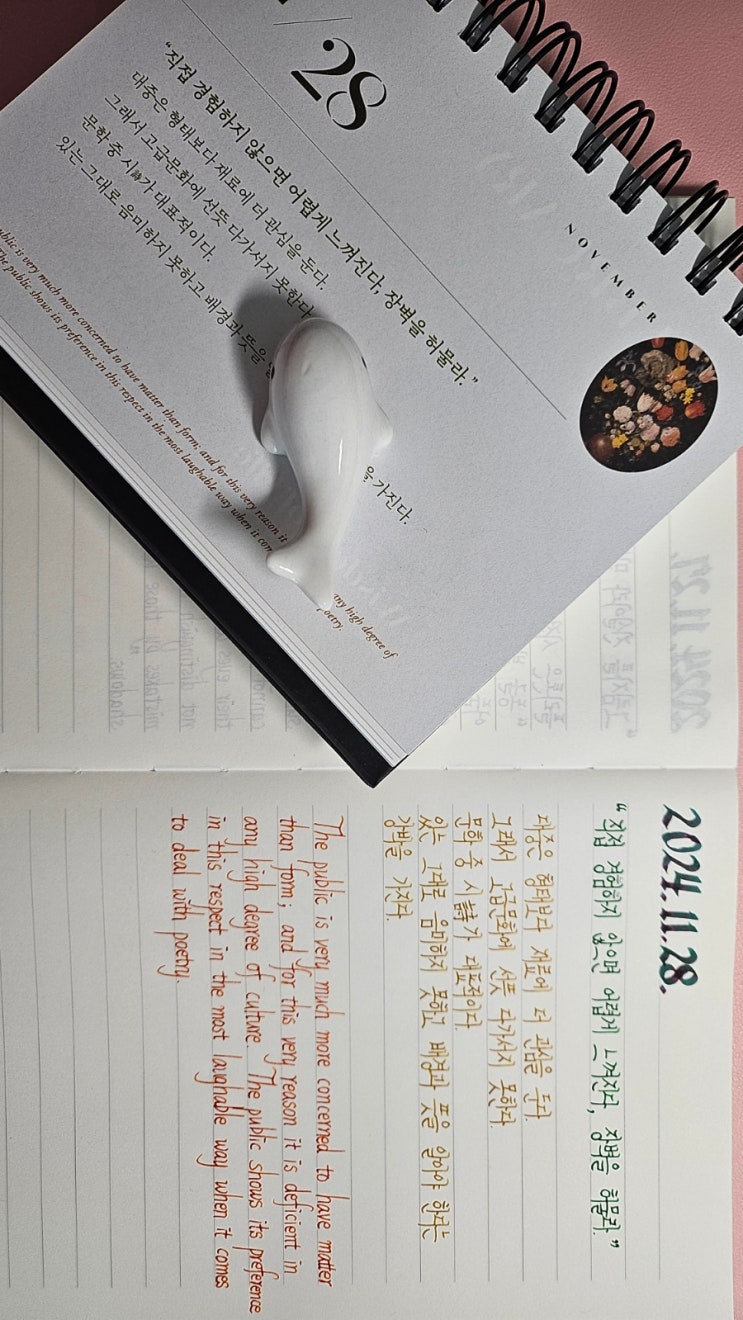 /28
NOVEMBER
“직접 경험하지 않으면 어렵게 느껴진다, 장벽을 허물라.”
대중은 형태보다 재료에 더 관심을 둔다.
그래서 고급문화에 선뜻 다가서지 못한다
문학 중 시詩가 대표적이다.
있는 그대로 음미하지 못하고 배경과 뜻을
을 가진다.
public is very much more concerned to have matter than form; and for this very reason it
any high degree of
The public shows its preference in this respect in the most laughable way when it com
poetry.
2024.11.27.
2024.11.28.
“직접 경험하지 않으면 어렵게 느껴진다, 장벽을 허물라.”
대중은 형태보다 재료에 더 관심을 둔다.
그래서 고급문화에 선뜻 다가서지 못한다.
문학 중 시詩가 대표적이다.
있는 그대로 음미하지 못하고 배경과 뜻을 알아야 한다는
장벽을 가진다.
The public is very much more concerned to have matter
than form; and for this very reason it is deficient in
any high degree of culture. The public shows its preference
in this respect in the most laughable way when it comes
to deal with poetry.